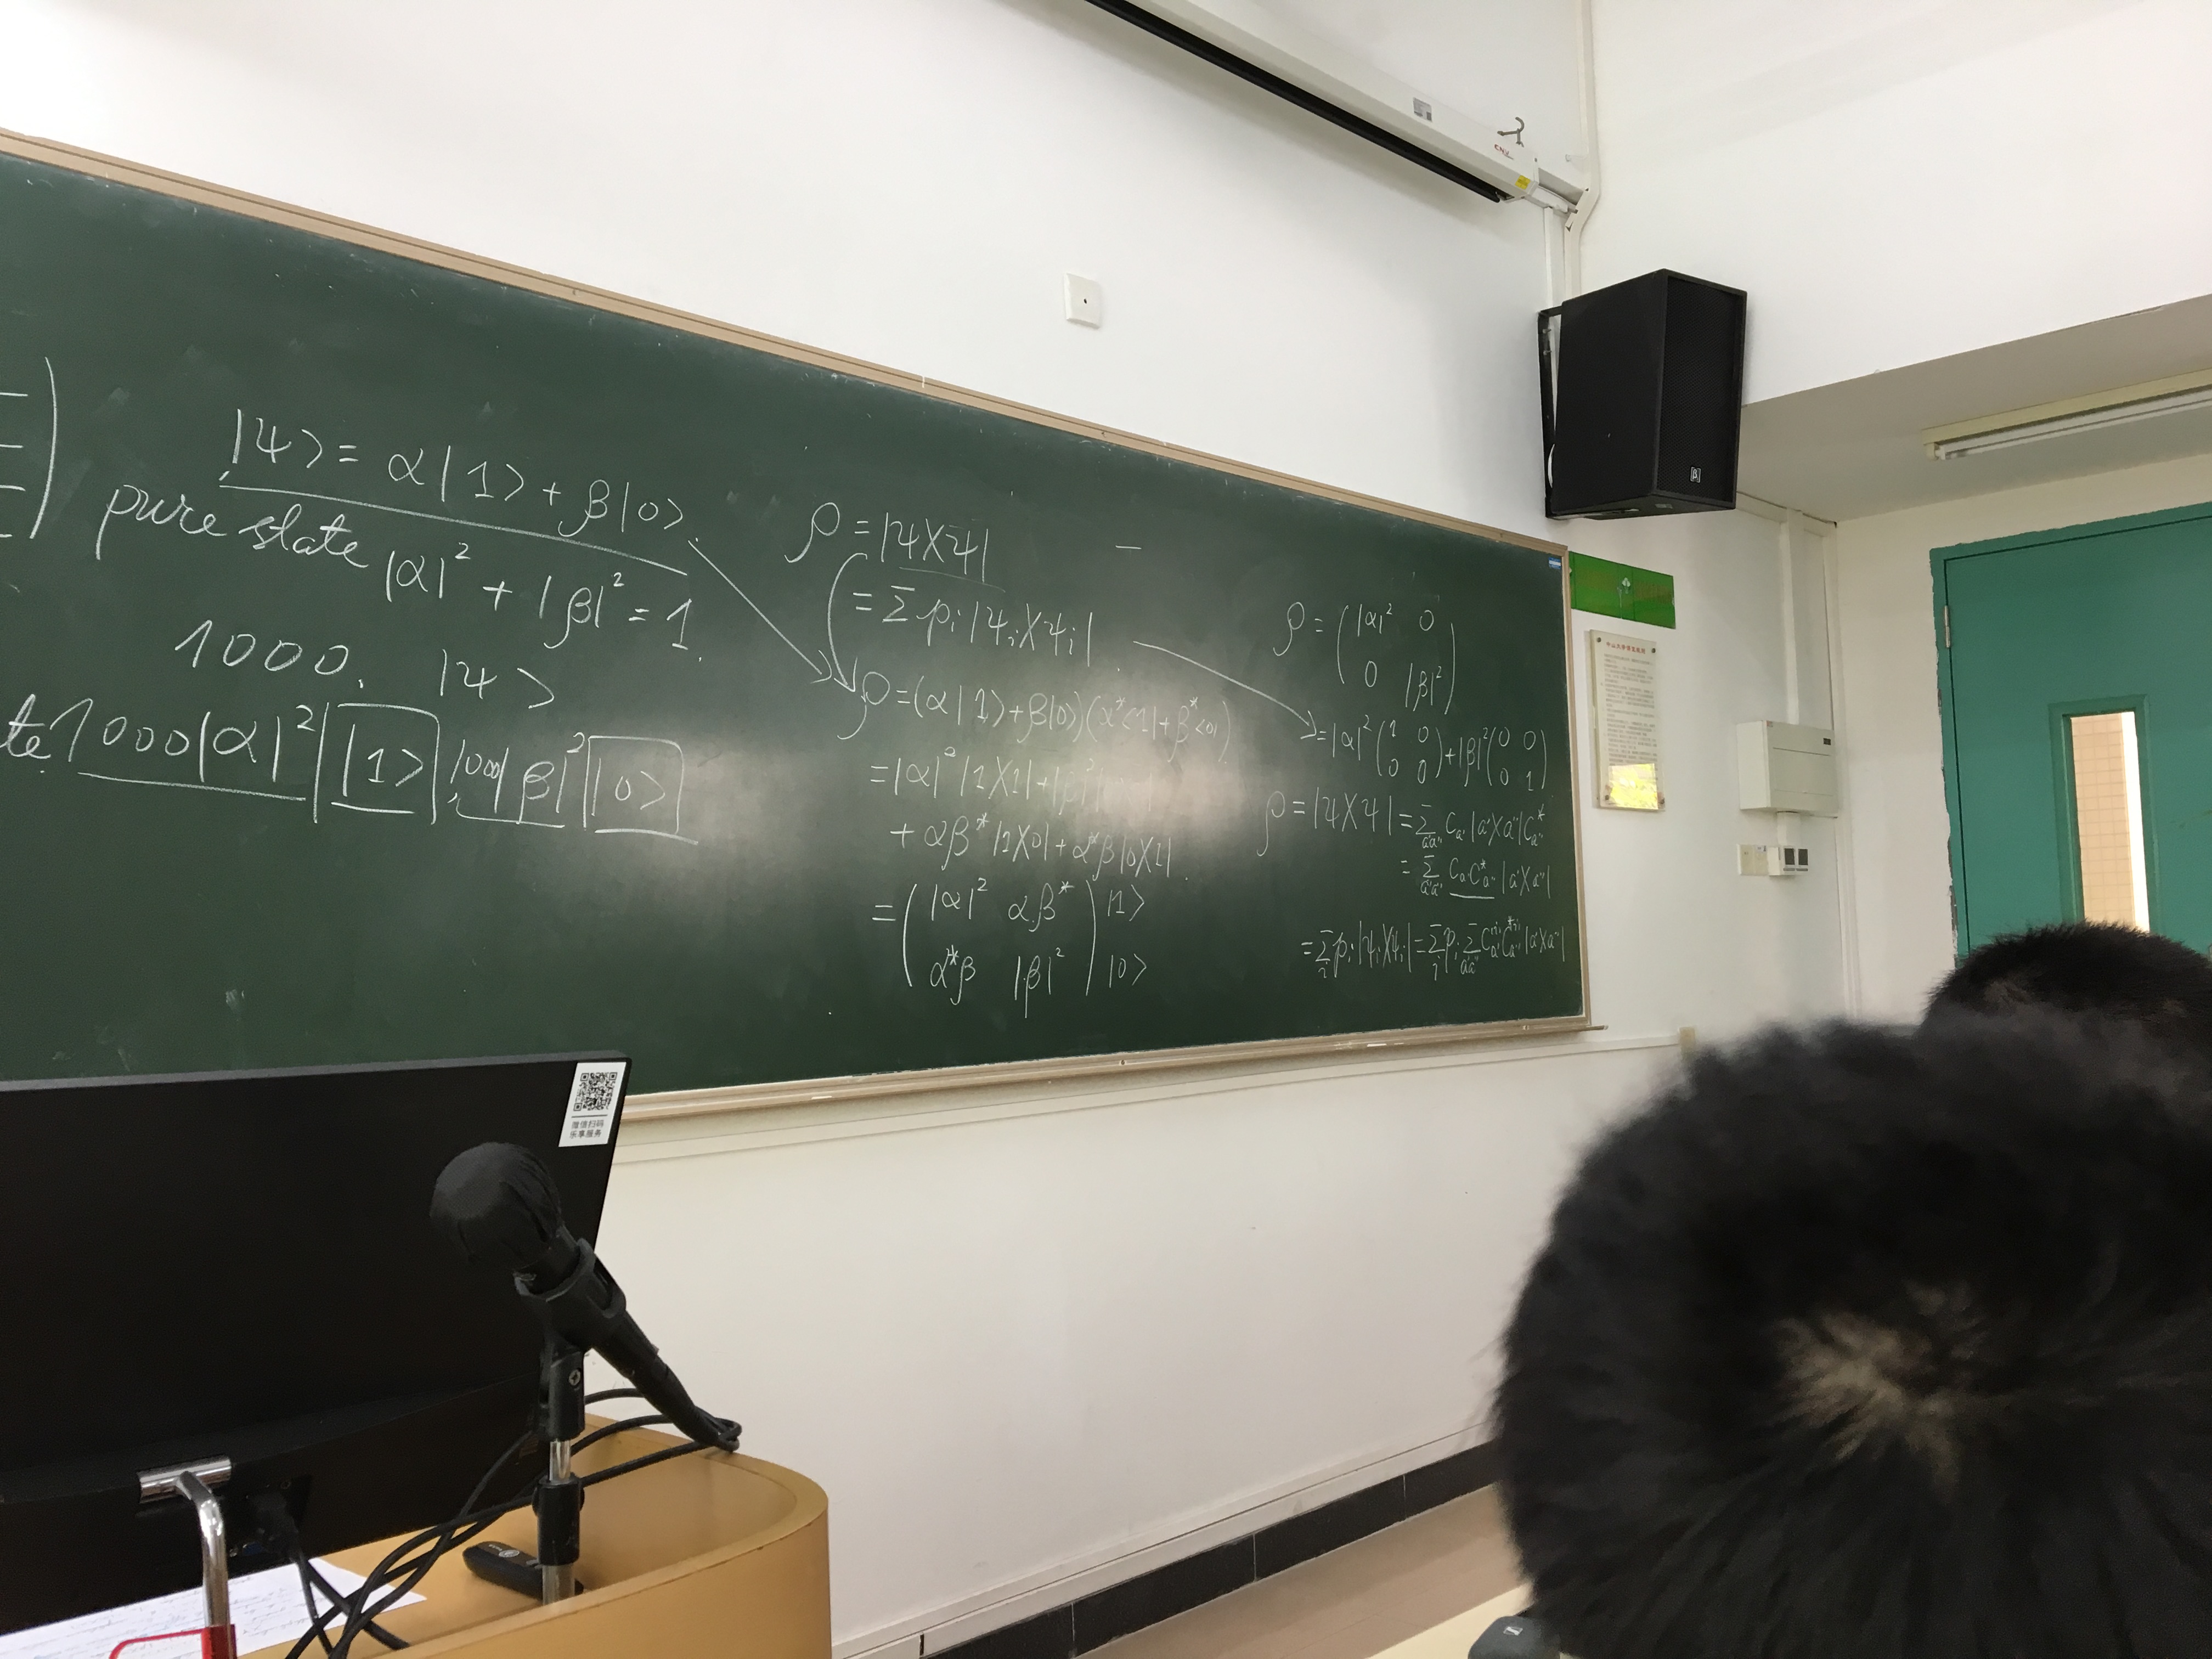 |ψ> = α|1> + β|0>.
pure state |α|² + |β|² = 1.
1000. |ψ>
te 1000|α|² |1> 1000|β|² |0>
ρ = |ψX ψ|
= Σ pᵢ |ψᵢXψᵢ|
ρ = (α|1>+β|0>)(α*<1|+β*<0|)
= |α|² |1X1| + |β|²
+ αβ* |1X0| + α*β |0X1|.
= ( |α|² αβ* ) |1>
( α*β |β|² ) |0>
ρ = ( |α|² 0 )
( 0 |β|² )
= |α|² ( 1 0 ) + |β|² ( 0 0 )
( 0 0 ) ( 0 1 )
ρ = |ψXψ| = Σ_{a'a''} C_{a'} |a'Xa''| C*_{a''}
= Σ_{a'a''} C_{a'} C*_{a''} |a'Xa''|
= Σᵢ pᵢ |ψᵢXψᵢ| = Σᵢ pᵢ Σ_{a'a''} C_{a'}⁽ⁱ⁾ C_{a''}*⁽ⁱ⁾ |a'Xa''|
微信扫码
乐享服务